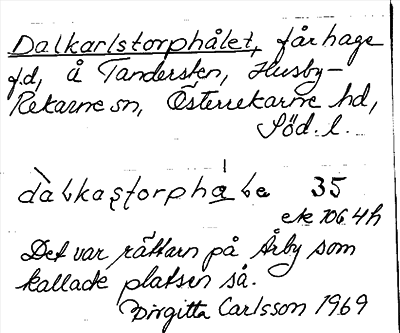 Dalkarlstorphålet, fårhage
f.d, å Tandersten, Husby-
Rekarne sn, Österrekarne hd,
Söd. l.
35
ek 10G 4h
Det var rättarn på Åby som
kallade platsen så.
Birgitta Carlsson 1969